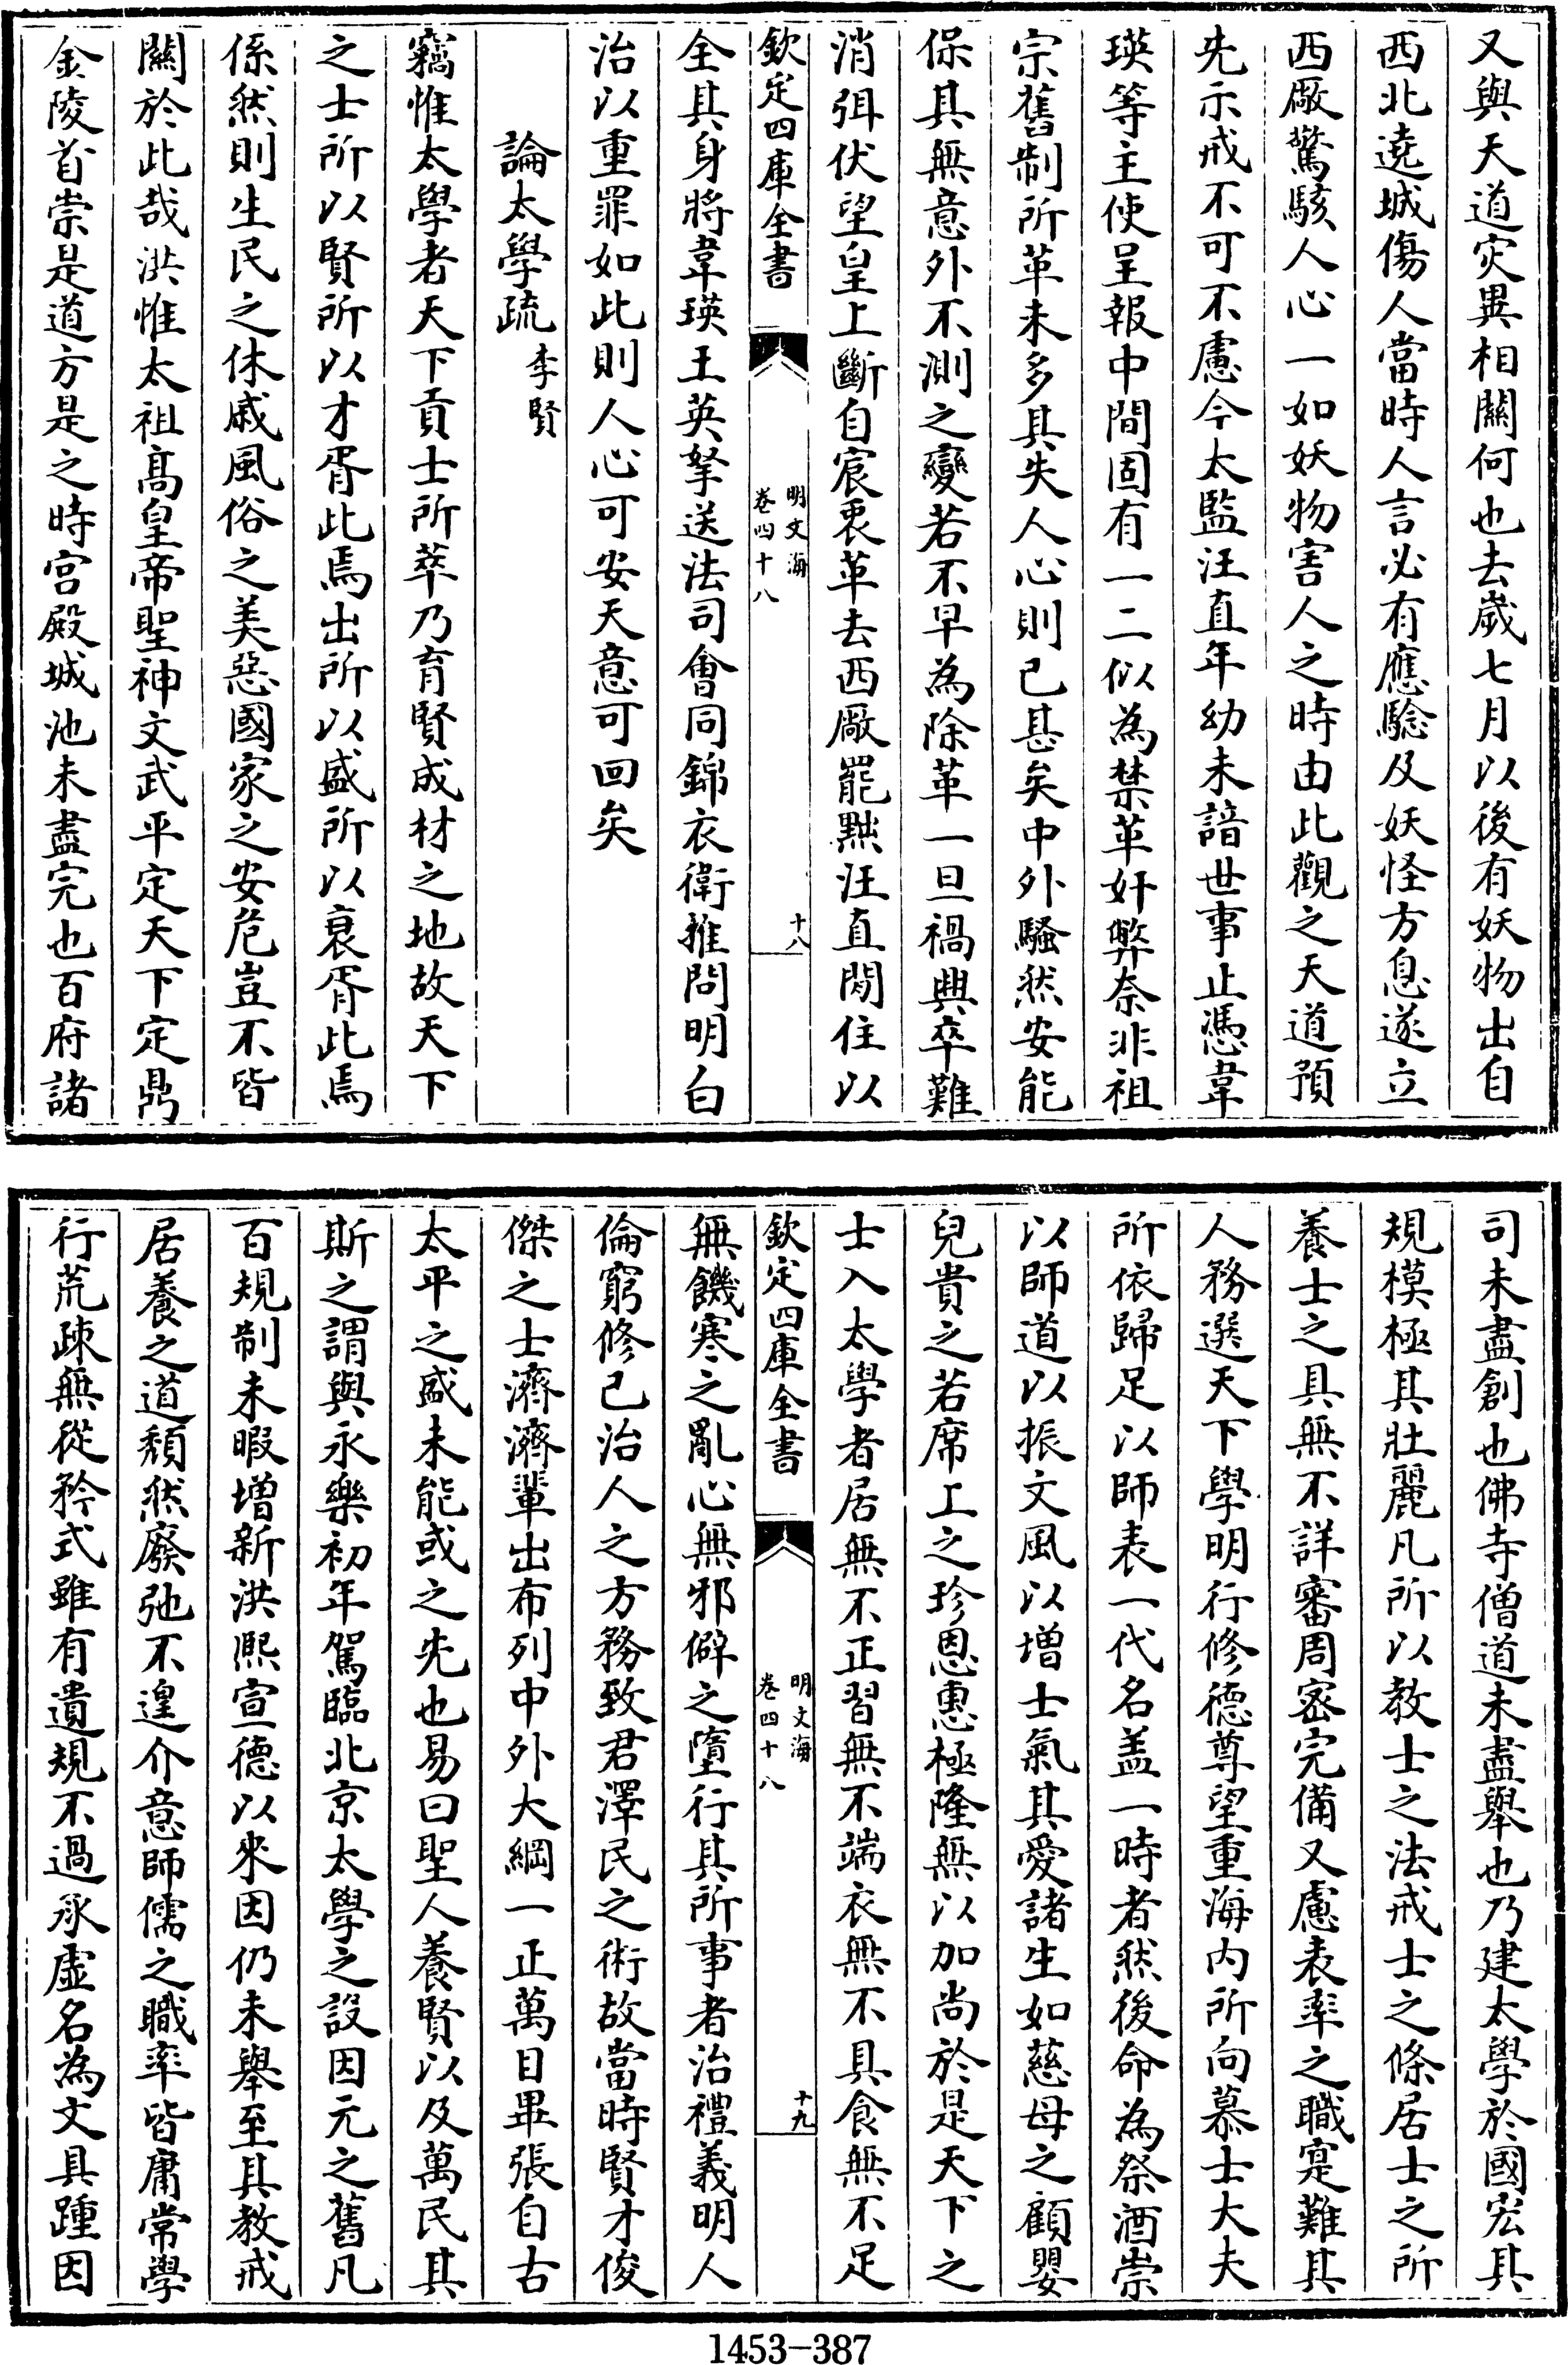 又與天道灾異相關何也去歲七月以後有妖物出自
西北遶城傷人當時人言必有應騐及妖怪方息遂立
西廠驚駭人心一如妖物害人之時由此觀之天道預
先示戒不可不慮今太監汪直年幼未諳世事止憑韋
瑛等主使呈報中間固有一二似為禁革奸弊奈非祖
宗舊制所革未多其失人心則已甚矣中外騷然安能
保其無意外不測之變若不早為除革一旦禍興卒難
消弭伏望皇上斷自宸衷革去西廠罷黜汪直閒住以
欽定四庫全書
明文海
卷四十八
十八
全其身將韋瑛王英拏送法司會同錦衣衛推問明白
治以重罪如此則人心可安天意可回矣
論太學疏 李賢
竊惟太學者天下貢士所萃乃育賢成材之地故天下
之士所以賢所以才胥此焉出所以盛所以衰胥此焉
係然則生民之休戚風俗之美惡國家之安危豈不皆
關於此哉洪惟太祖高皇帝聖神文武平定天下定鼎
金陵首崇是道方是之時宮殿城池未盡完也百府諸
司未盡創也佛寺僧道未盡舉也乃建太學於國宏其
規模極其壯麗凡所以教士之法戒士之條居士之所
養士之具無不詳審周密完備又慮表率之職寔難其
人務選天下學明行修德尊望重海内所向慕士大夫
所依歸足以師表一代名盖一時者然後命為祭酒崇
以師道以振文風以增士氣其愛諸生如慈母之顧嬰
兒貴之若席上之珍恩惠極隆無以加尚於是天下之
士入太學者居無不正習無不端衣無不具食無不足
欽定四庫全書
明文海
卷四十八
十九
無饑寒之亂心無邪僻之墮行其所事者治禮義明人
倫窮修己治人之方務致君澤民之術故當時賢才俊
傑之士濟濟輩出布列中外大綱一正萬目畢張自古
太平之盛未能或之先也易曰聖人養賢以及萬民其
斯之謂與永樂初年駕臨北京太學之設因元之舊凡
百規制未暇增新洪熙宣德以來因仍未舉至其教戒
居養之道頽然廢弛不遑介意師儒之職率皆庸常學
行荒疎無從矜式雖有遺規不過承虛名為文具踵因
1453-387